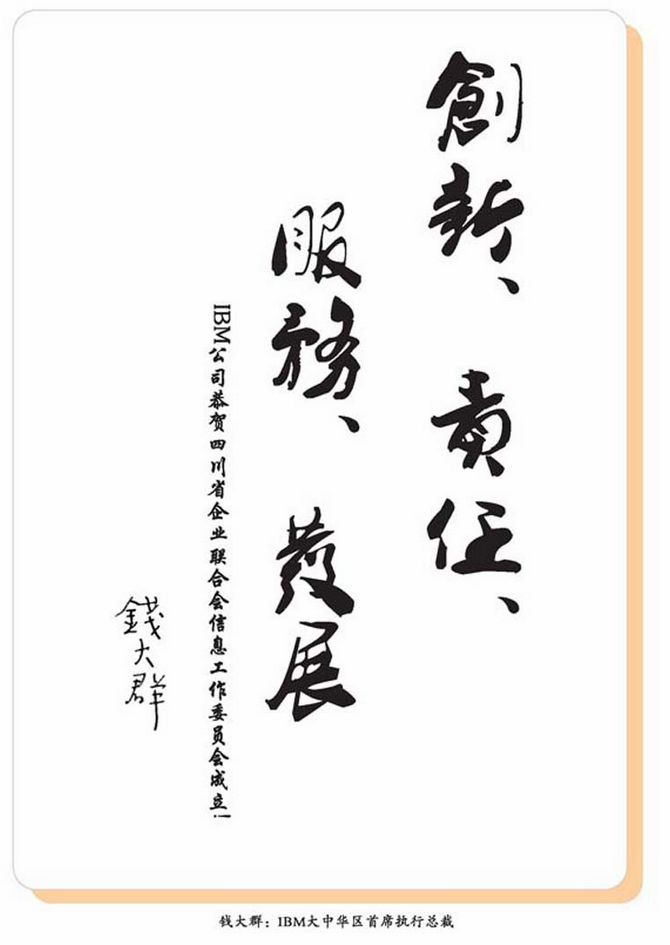 創新、責任、
服務、發展
IBM公司恭贺四川省企业联合会信息工作委员会成立!
錢大群
钱大群：IBM大中华区首席执行总裁